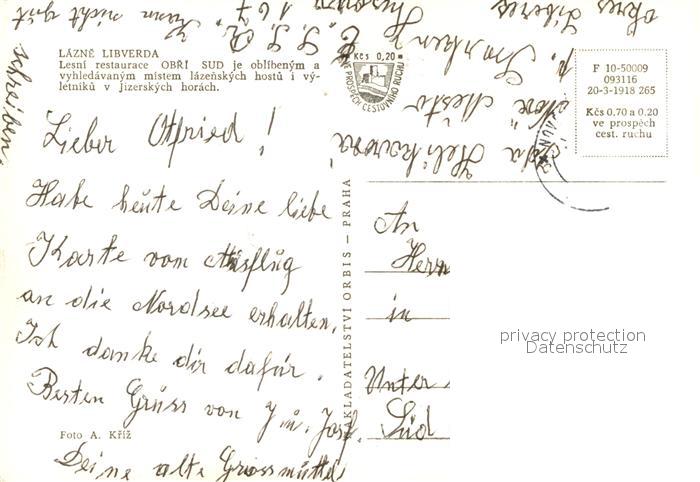 LÁZNĚ LIBVERDA
Lesní restaurace OBŘÍ SUD je oblíbeným a
vyhledávaným místem lázeňských hostů i vý-
letníků v Jizerských horách.
Kčs 0,20
VE PROSPĚCH CESTOVNÍHO RUCHU
F 10-50009
093116
20-3-1918 265
Kčs 0.70 a 0.20
ve prospěch
cest. ruchu
Lieber Otfried!
Habe heute Deine liebe
Karte vom Ausflug
an die Nordsee erhalten.
Ich danke dir dafür.
Besten Grüss von J. u. Josf.
Deine alte Grossmutter
Kann nicht gut
schreiben
Nové Město
Č. S. S. R.
okres Liberec
NAKLADATELSTVÍ ORBIS — PRAHA
An
Herrn
in
Unter
Süd
privacy protection
Datenschutz
Foto A. Kříž